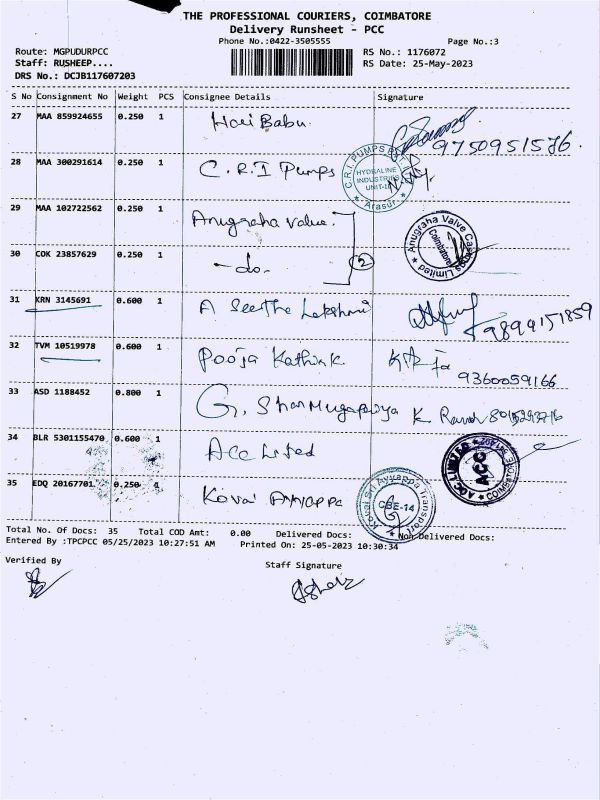 THE PROFESSIONAL COURIERS, COIMBATORE
Delivery Runsheet - PCC
Phone No.:0422-3505555
Page No.:3
Route: MGPUDURPCC
RS No.: 1176072
Staff: RUSHEEP....
RS Date: 25-May-2023
DRS No.: DCJB117607203
S No Consignment No Weight PCS Consignee Details Signature
27 MAA 859924655 0.250 1 Hari Babu 9750951576.
28 MAA 300291614 0.250 1 C.R.I Pumps
C.R.I. PUMPS HYDRALINE INDUSTRIES UNIT-II Arasur.
29 MAA 102722562 0.250 1 Anugraha Value.
Anugraha Valve Castings Limited Coimbatore
30 COK 23857629 0.250 1 -do. 2
31 KRN 3145691 0.600 1 A Seetha Lakshmi 9894151859
32 TVM 10519978 0.600 1 Pooja Karthik 9360059166
33 ASD 1188452 0.800 1 G. Shanmugapriya
34 BLR 5301155470 0.600 1 Acc Lited
ACC LIMITED ACC COIMBATORE
35 EDQ 20167701 0.250 1 Kovai Ayyappa
Kovai Sri Ayyappa Transport CBE-14
Total No. Of Docs: 35 Total COD Amt: 0.00 Delivered Docs: Non Delivered Docs:
Entered By :TPCPCC 05/25/2023 10:27:51 AM Printed On: 25-05-2023 10:30:34
Verified By
Staff Signature